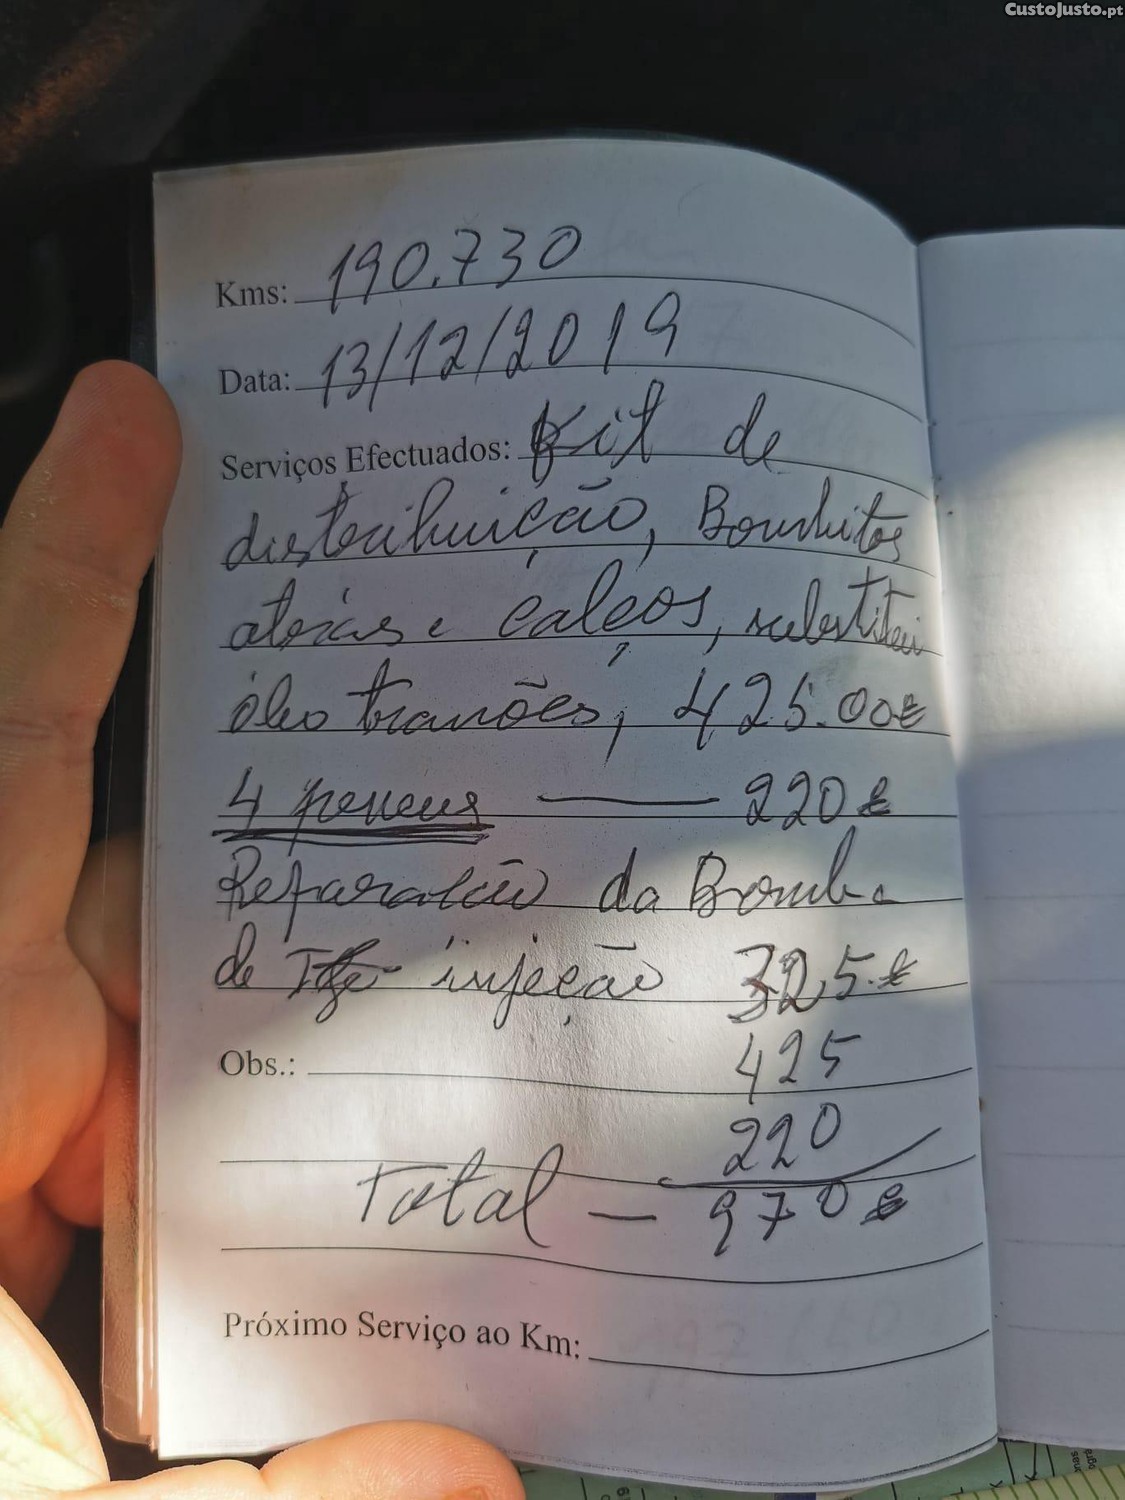 CustoJusto.pt
Kms: 190.730
Data: 13/12/2019
Serviços Efectuados: Kit de
distribuição, Bombitos
atrás e calços, substitui
óleo travões, 425.00€
4 peneus — 220€
Reparação da Bomba
de injeção 325.€
Obs.: 425
220
Total — 970€
Próximo Serviço ao Km: